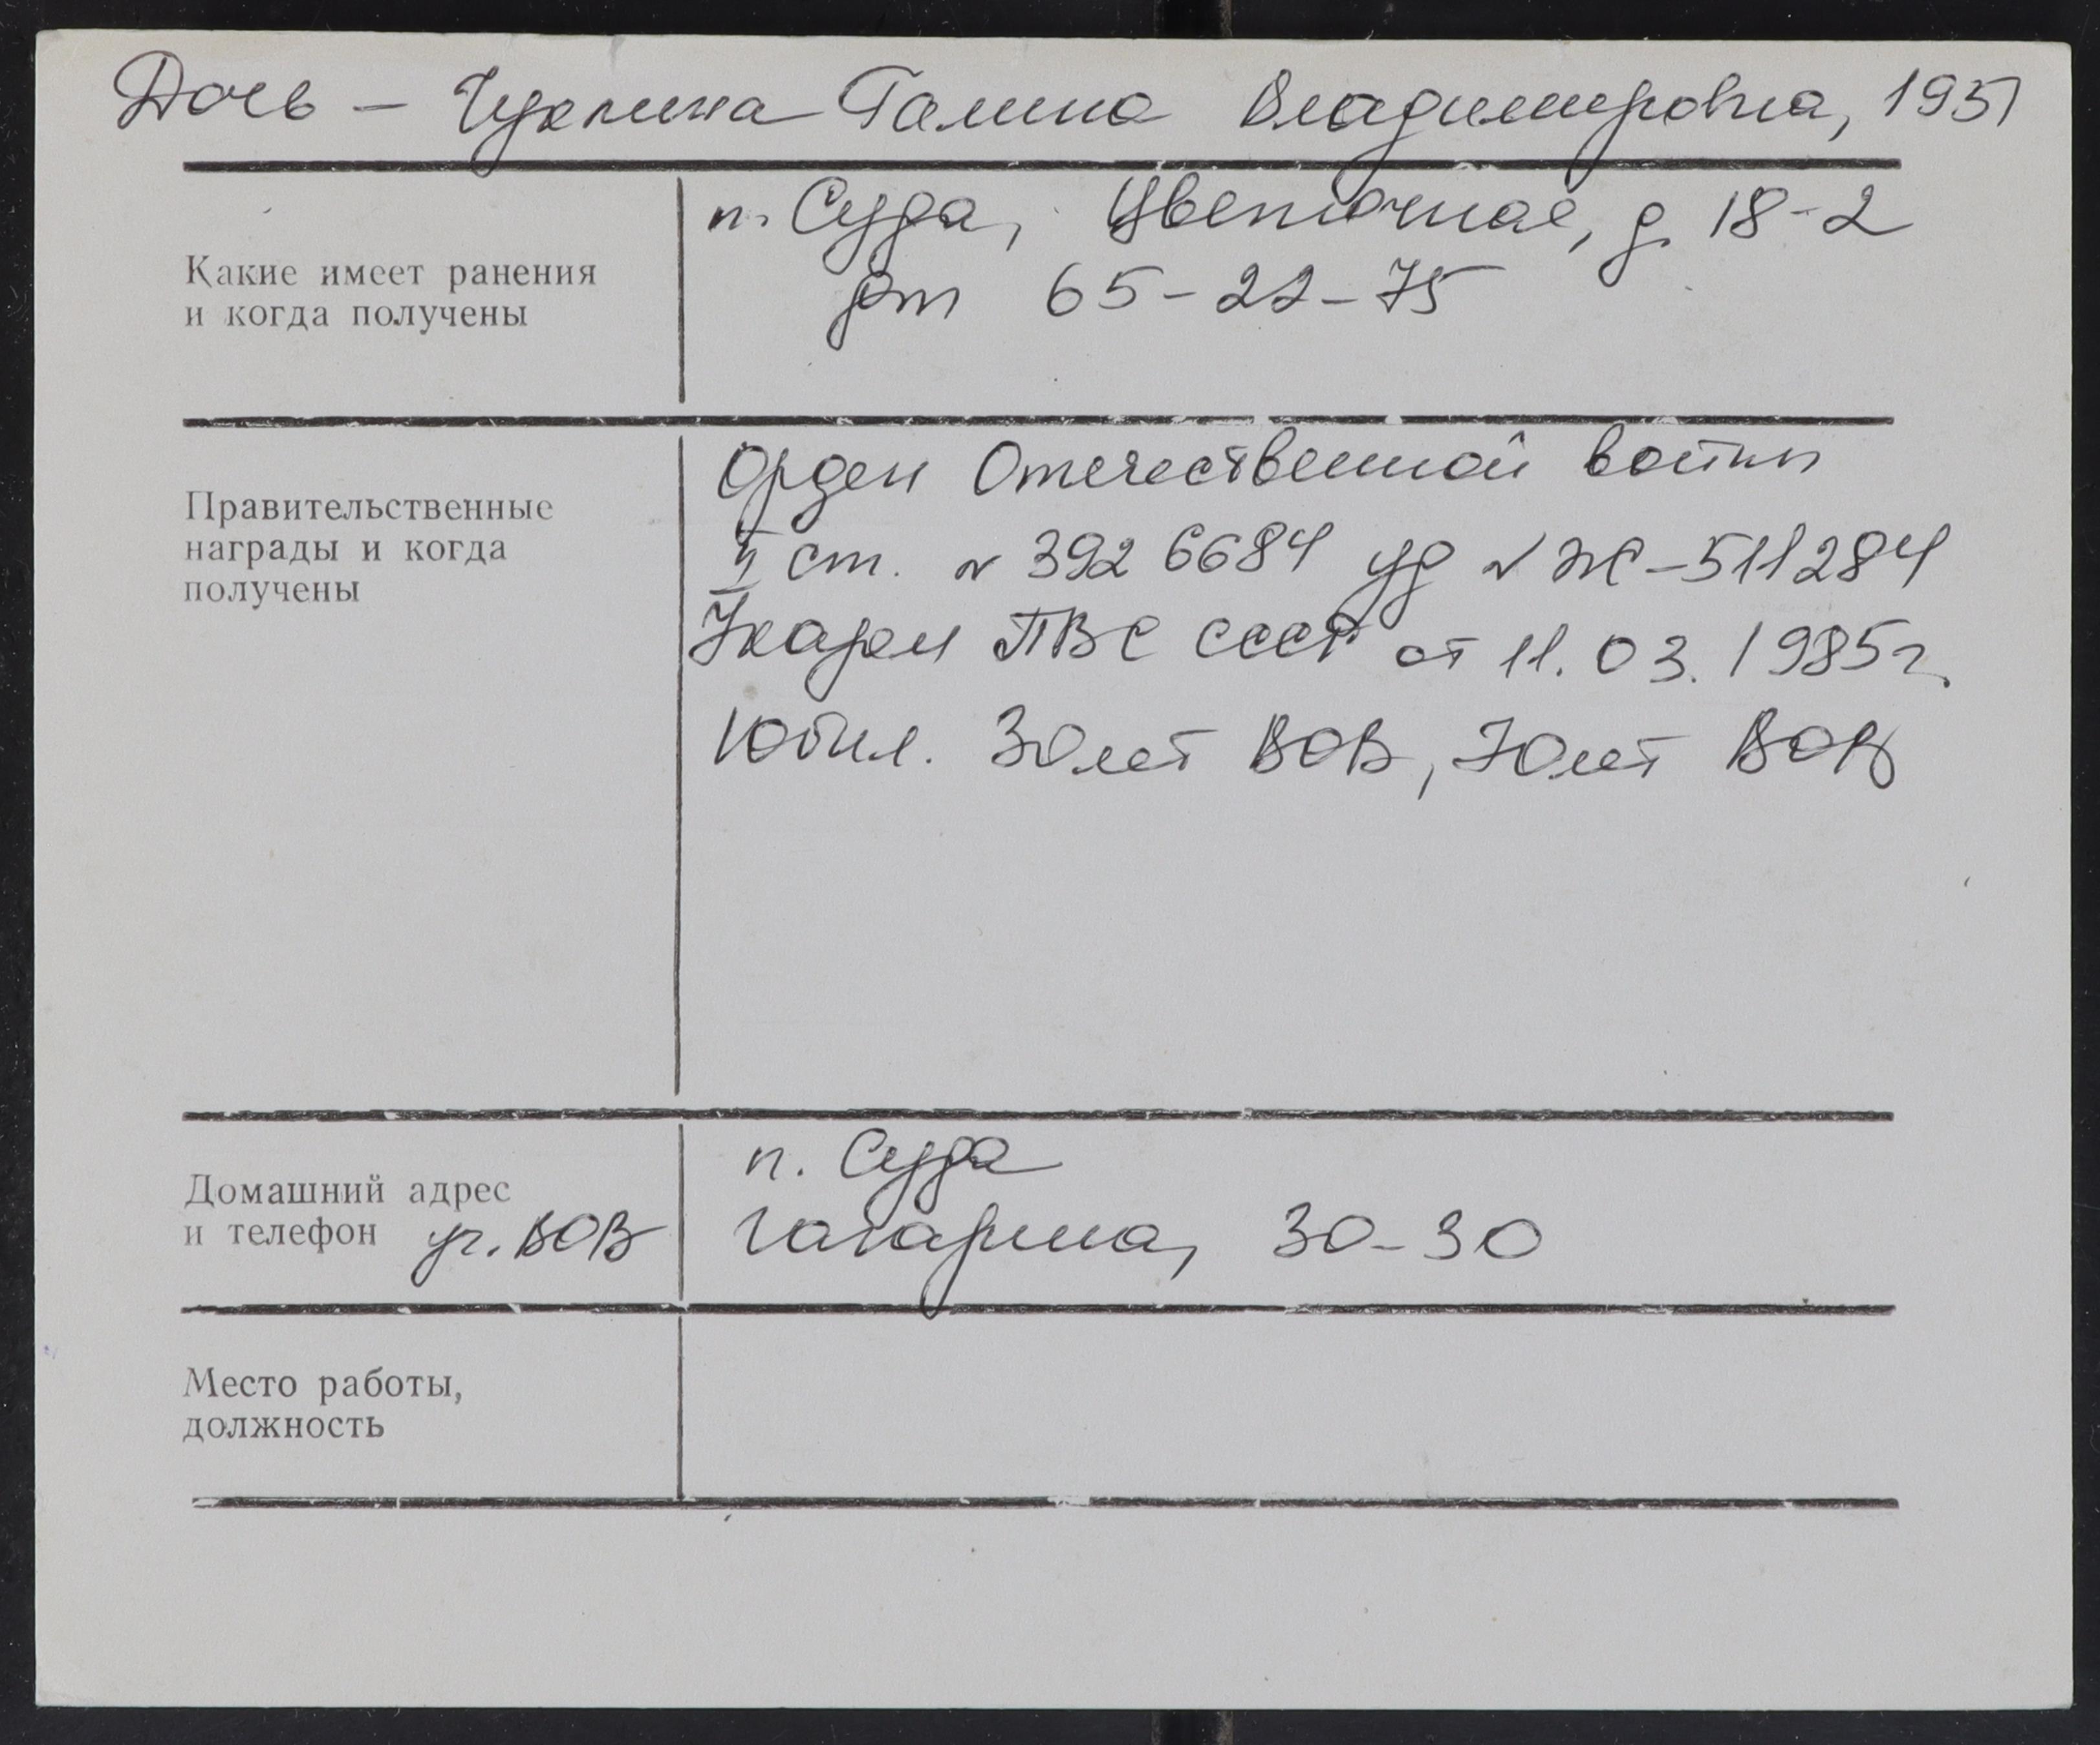 Дочь – Чухлина Галина Владимировна, 1951
п. Суда, Цветочная, д. 18-2
Какие имеет ранения
и когда получены
дт 65-22-75
Орден Отечественной войны
Правительственные
награды и когда
получены
II ст. N 392 6684 уд N Ж-511284
Указом ПВС СССР от 11.03.1985г.
Юбил. 30лет ВОВ, 70лет ВОВ
Домашний адрес
и телефон уч. ВОВ
п. Суда
Гагарина, 30-30
Место работы,
должность